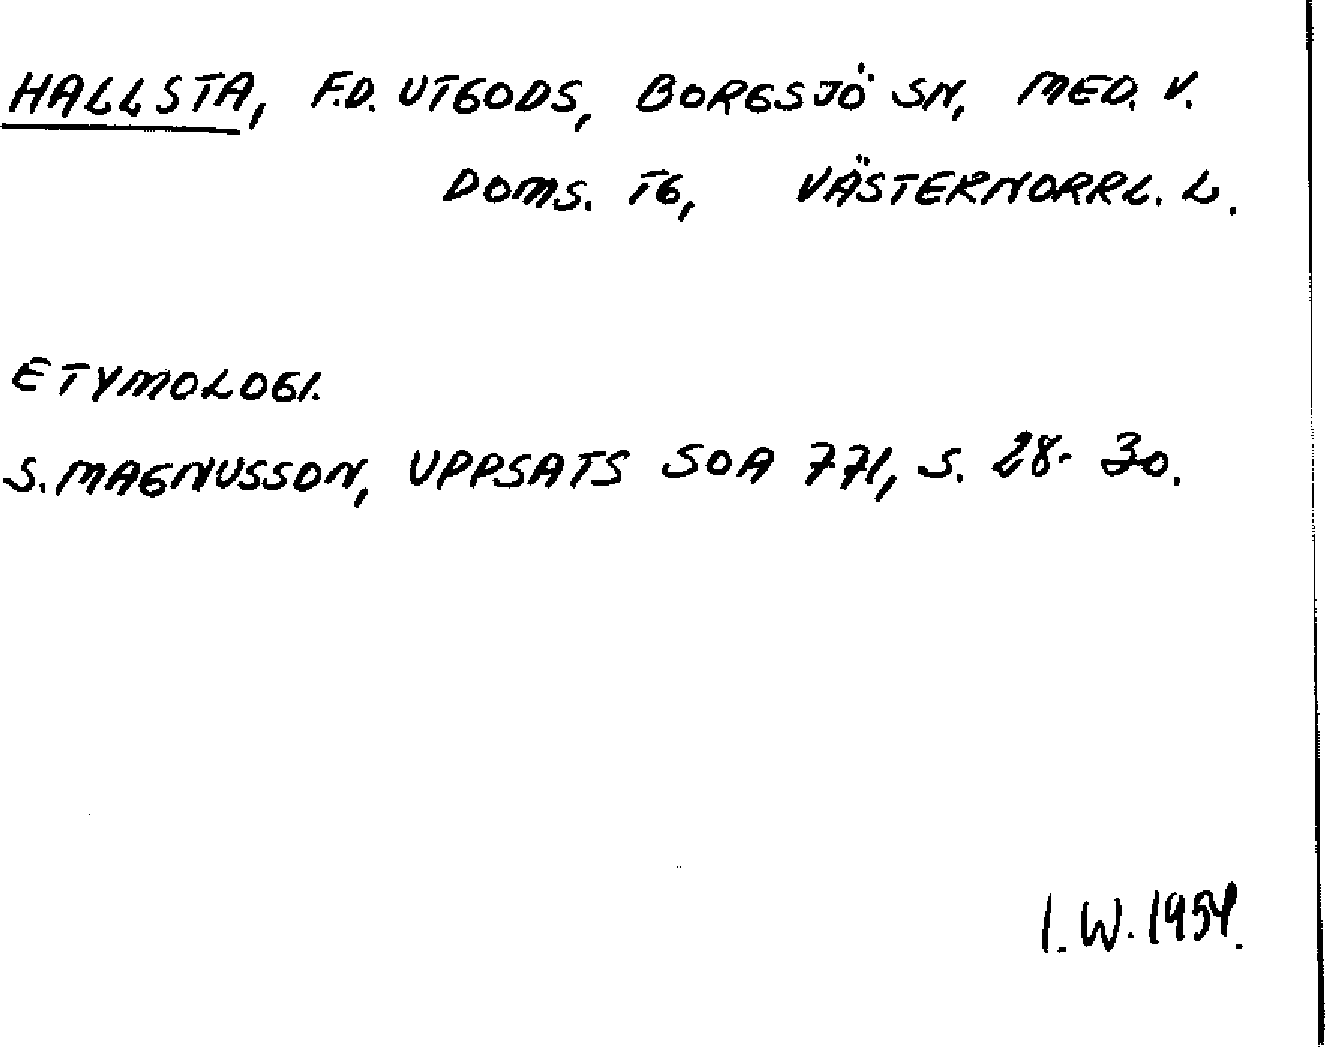 HALLSTA, F.D. UTGODS, BORGSJÖ SN, MED. V.
DOMS. TG, VÄSTERNORRL. L.
ETYMOLOGI.
S. MAGNUSSON, UPPSATS SOA 771, S. 28-30.
I. W. 1954.